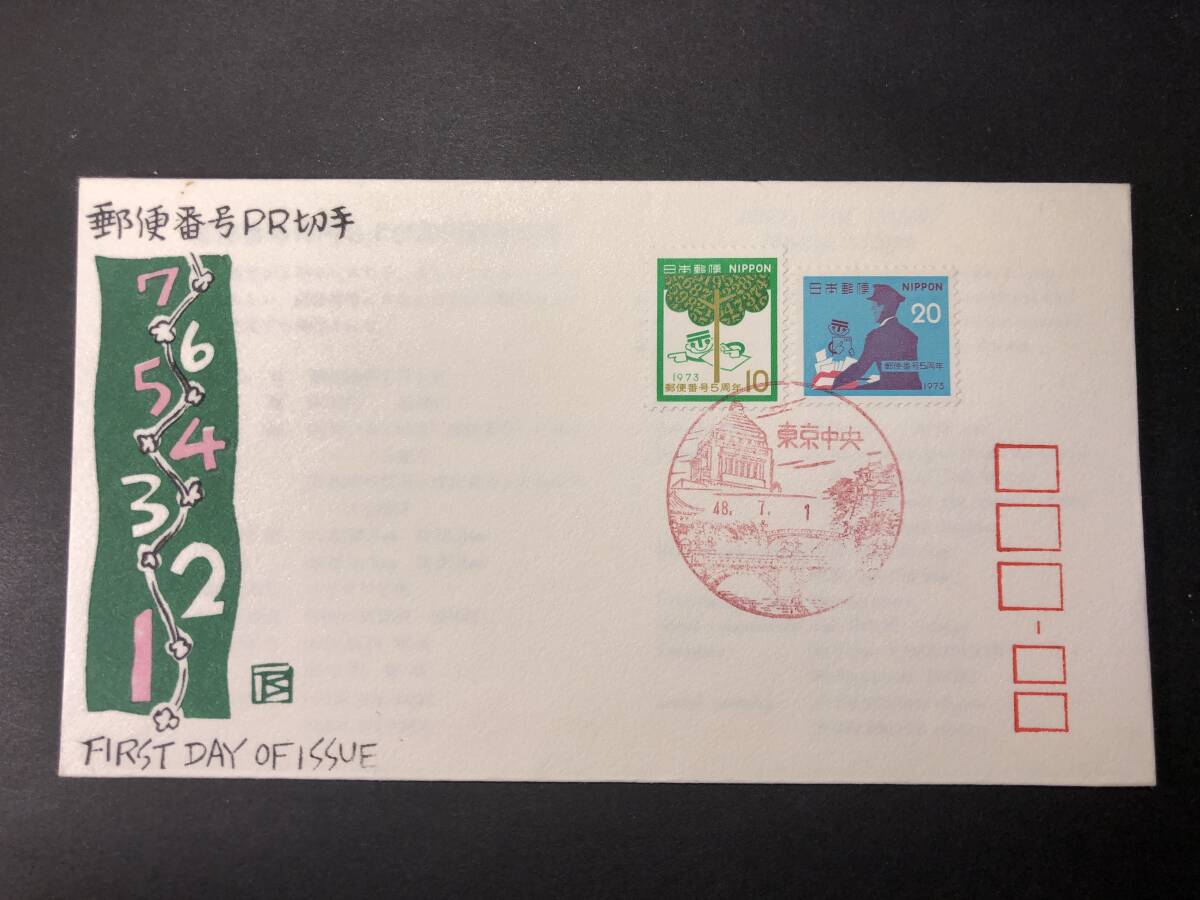 郵便番号PR切手
7
6
5
4
3
2
1
FIRST DAY OF ISSUE
日本郵便 NIPPON
1973
郵便番号5周年 10
日本郵便 NIPPON
20
郵便番号5周年
1973
東京中央
48. 7. 1